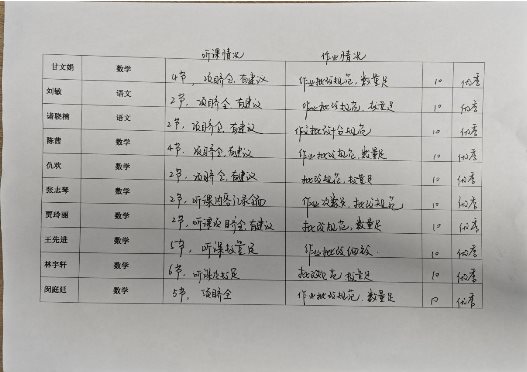 听课情况 作业情况
甘文娟 数学 4节，项齐全，有建议 作业批改规范，数量足 10 优秀
刘敏 语文 2节，项齐全，有建议 作业批改规范，数量足 10 优秀
诸晓楠 语文 2节，项齐全，有建议 作文批改符合规范 10 优秀
陈茜 数学 4节，项齐全，有建议 作业批改规范，数量足 10 优秀
仇欢 数学 2节，项齐全，有建议 批改规范，数量足 10 优秀
张志琴 数学 2节，听课内容记录全面 作业次数足，批改规范 10 优秀
贾玲丽 数学 2节，听课项齐全，有建议 批改规范，数量足 10 优秀
王先进 数学 5节，听课数量足 作业批改细致 10 优秀
林宇轩 数学 6节，听课数量足 批改规范，数量足 10 优秀
闵庭廷 数学 5节，项齐全 作业批改规范，数量足 10 优秀